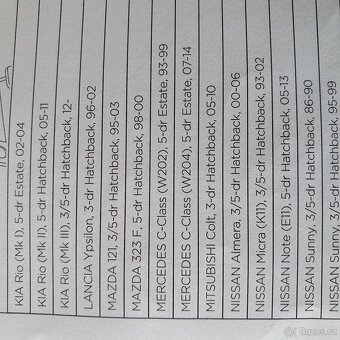 KIA Rio (Mk I), 5-dr Estate, 02-04
KIA Rio (Mk II), 5-dr Hatchback, 05-11
KIA Rio (Mk III), 3/5-dr Hatchback, 12-
LANCIA Ypsilon, 3-dr Hatchback, 96-02
MAZDA 121, 3/5-dr Hatchback, 95-03
MAZDA 323 F, 5-dr Hatchback, 98-00
MERCEDES C-Class (W202), 5-dr Estate, 93-99
MERCEDES C-Class (W204), 5-dr Estate, 07-14
MITSUBISHI Colt, 3-dr Hatchback, 05-10
NISSAN Almera, 3/5-dr Hatchback, 00-06
NISSAN Micra (K11), 3/5-dr Hatchback, 93-02
NISSAN Note (E11), 5-dr Hatchback, 05-13
NISSAN Sunny, 3/5-dr Hatchback, 86-90
NISSAN Sunny, 3/5-dr Hatchback, 95-99